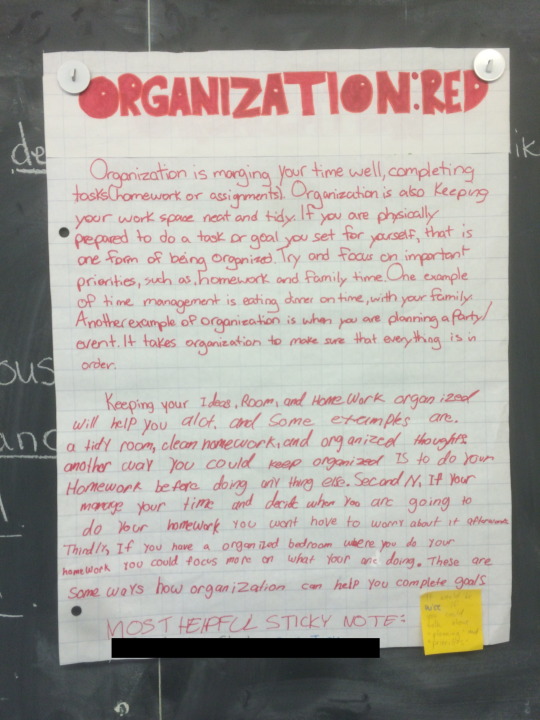 ORGANIZATION:RED
Organization is marging your time well, completing
tasks(homework or assignments). Organization is also keeping
your work space neat and tidy. If you are physically
prepared to do a task or goal you set for yourself, that is
one form of being organized. Try and focus on important
priorities, such as, homework and family time. One example
of time management is eating dinner on time, with your family.
Another example of organization is when you are planning a party/
event. It takes organization to make sure that everything is in
order.
Keeping your Ideas, Room, and HomeWork organized
will help you alot, and some examples are.
a tidy room, clean homework, and organized thoughts
another way you could keep organized Is to do your
Homework before doing any thing else. SecondlY, If Your
manage your time and decide when you are going to
do Your homework you wont have to worry about it afterwards
Thirdly, If you have a organized bedroom where you do your
homework you could focus more on what your are doing. These are
some ways how organization can help you complete goals
MOST HElPFUL STICKY NOTE:
de
ik
ous
anc